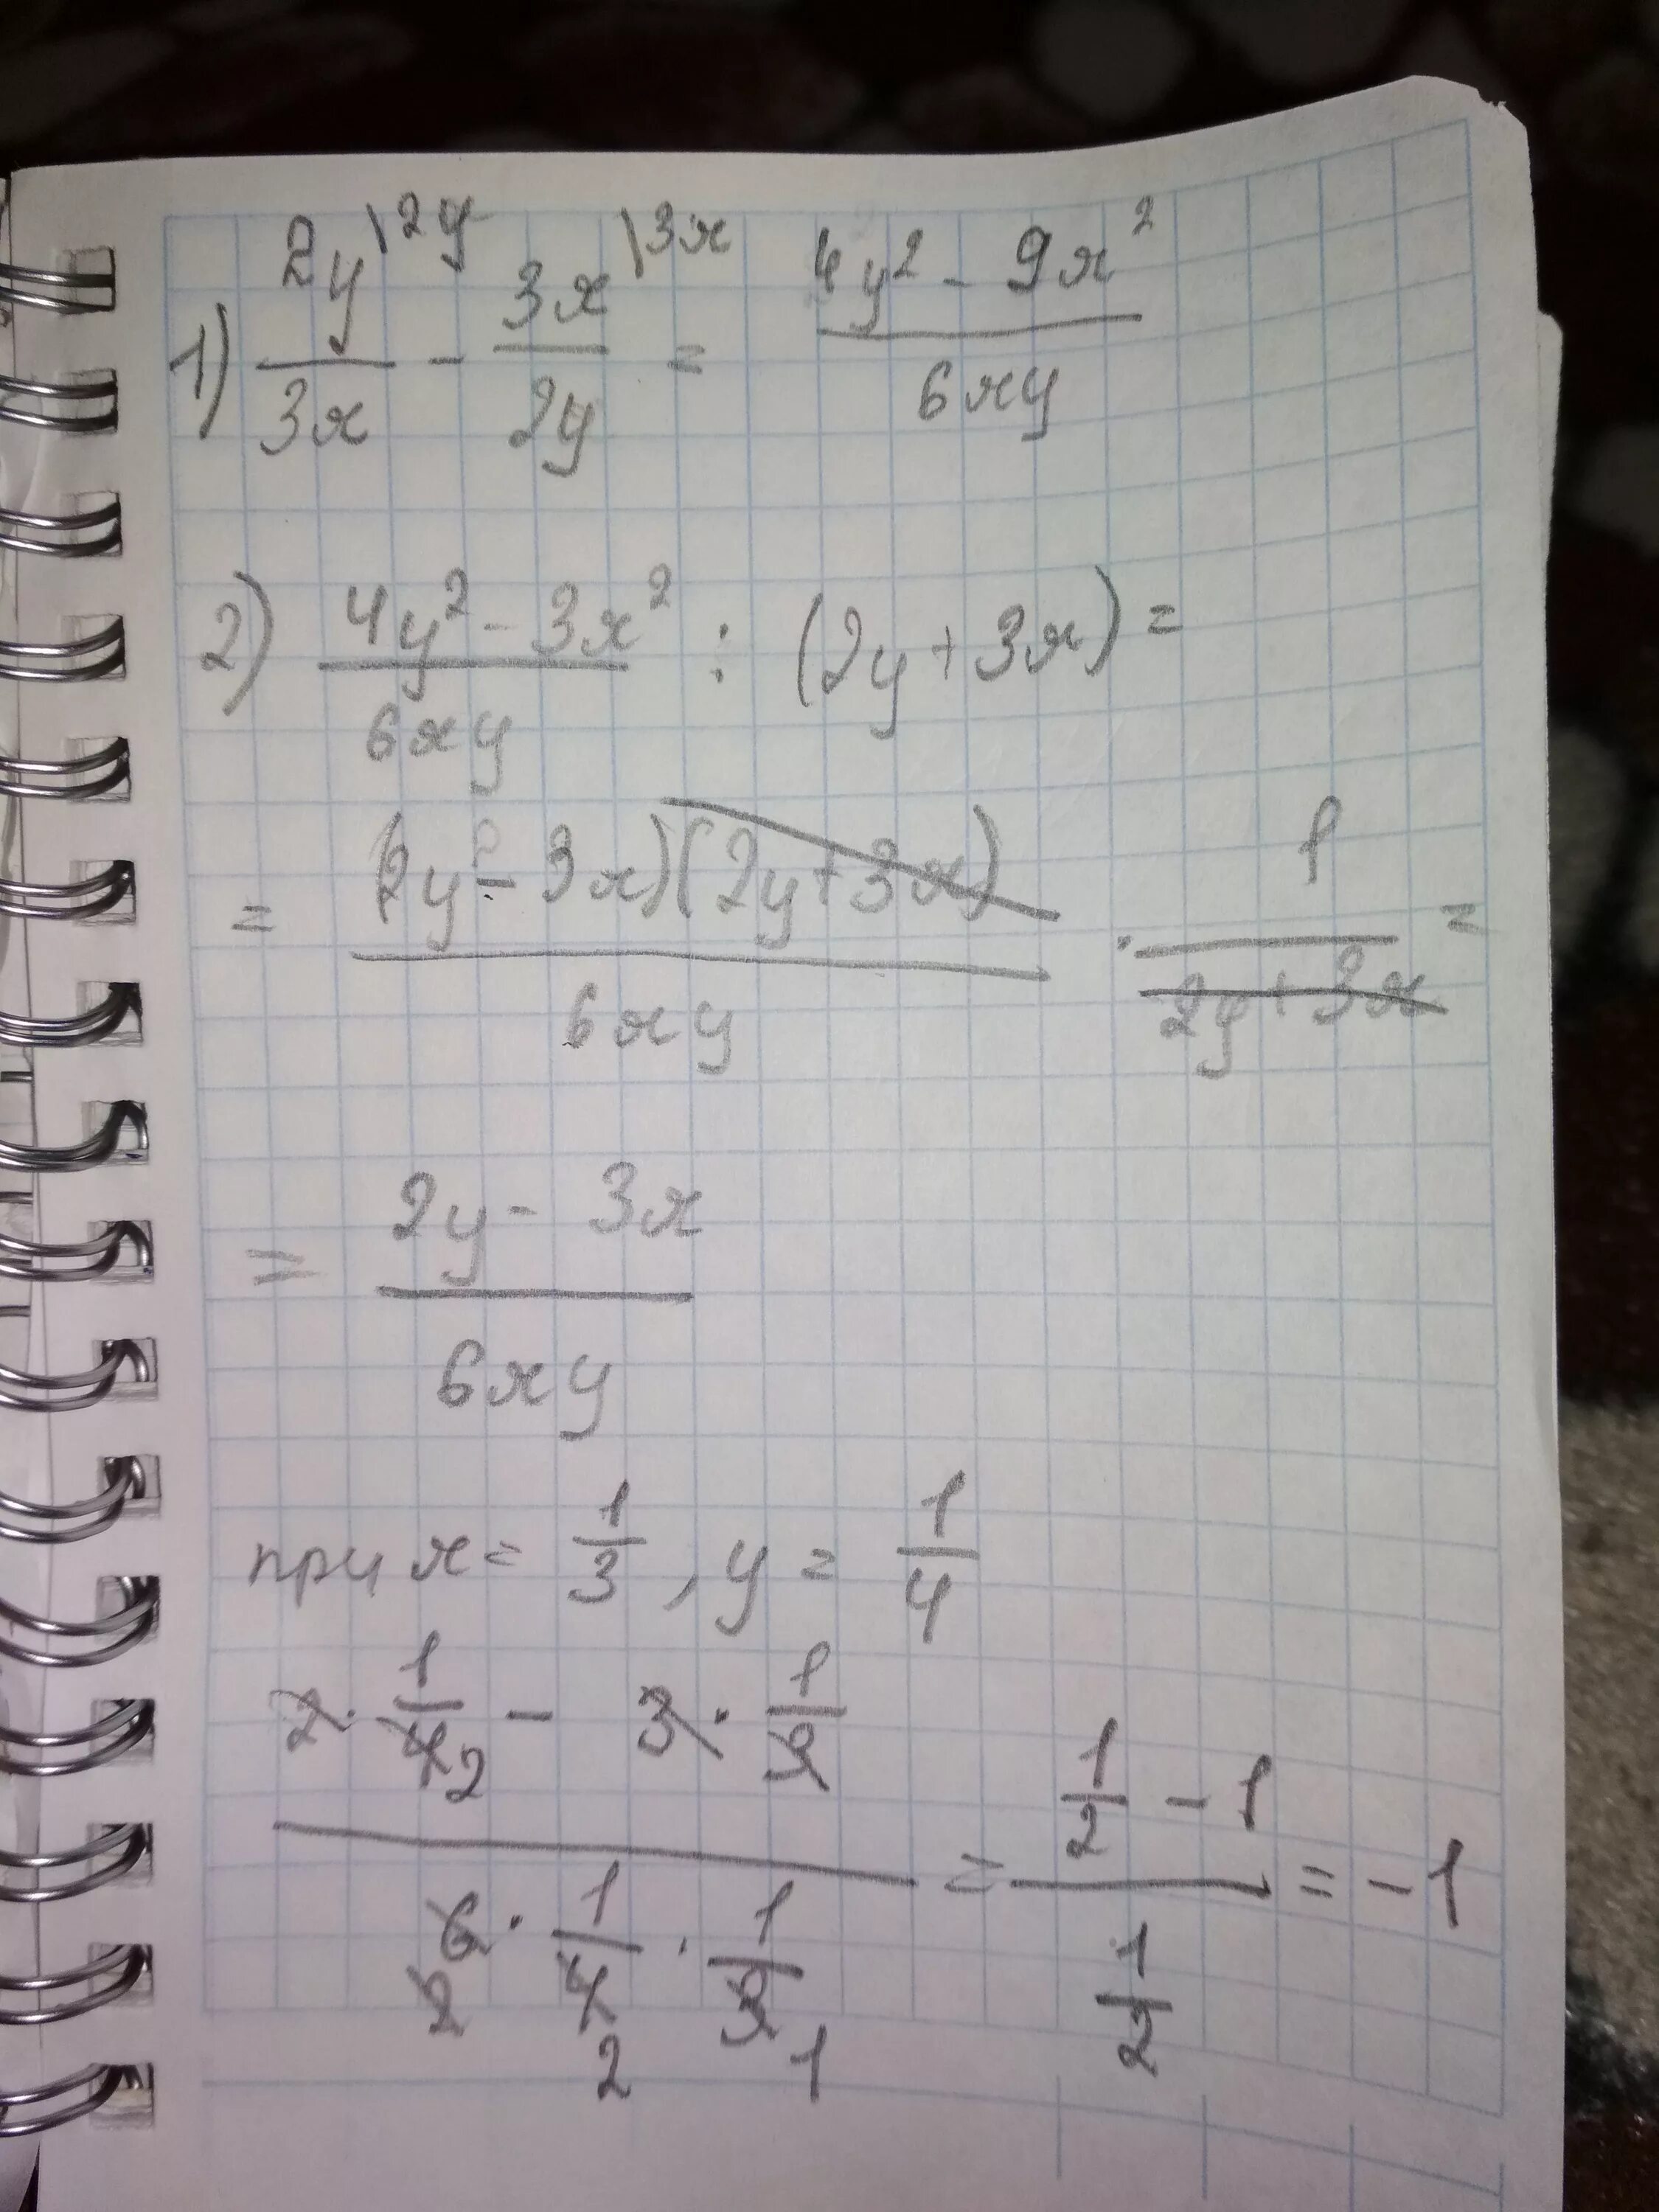 1) 2y\2y/3x - 3x\3x/2y = (4y² - 9x²)/6xy
2) (4y² - 3x²)/6xy : (2y + 3x) =
= (2y - 3x)(2y + 3x)/6xy · 1/(2y + 3x) =
= (2y - 3x)/6xy
при x = 1/3, y = 1/4
(2 · 1/4 2 - 3 · 1/3)/(6 2 · 1/4 2 · 1/3 1) = (1/2 - 1)/(1/2) = -1